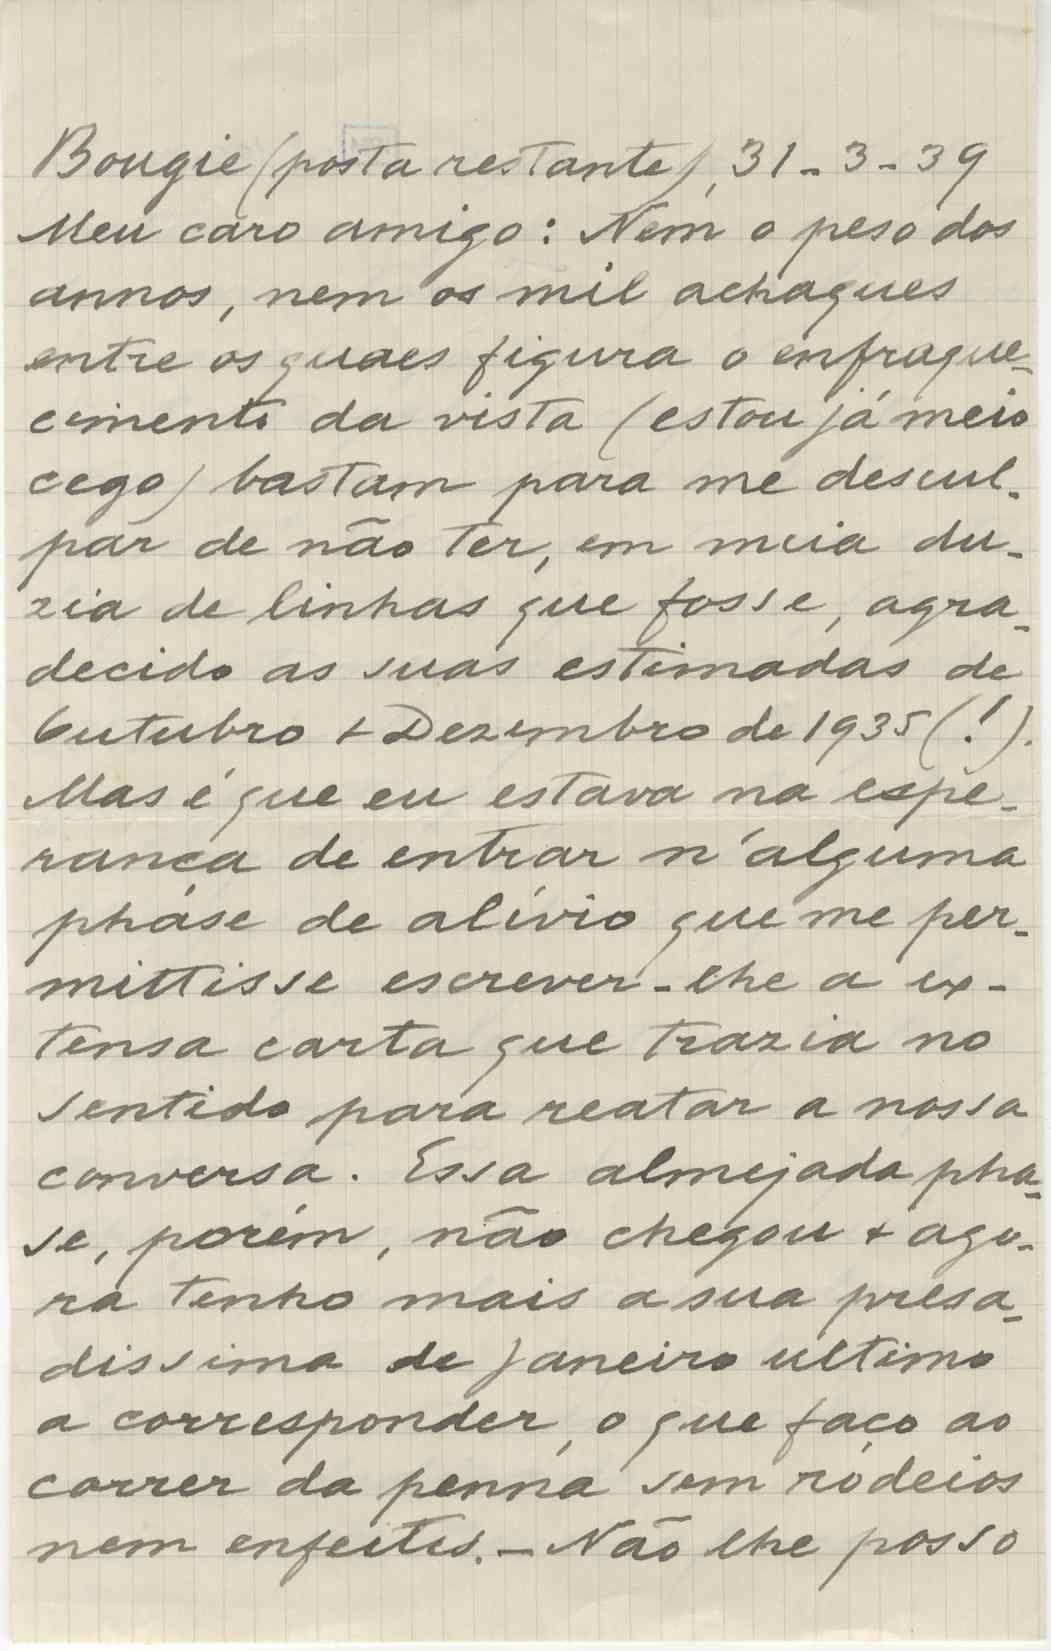 Bougie (posta restante), 31-3-39
Meu caro amigo: Nem o peso dos
annos, nem os mil achaques
entre os quaes figura o enfraque-
cimento da vista (estou já meio
cego) bastam para me descul-
par de não ter, em meia du-
zia de linhas que fosse, agra-
decido as suas estimadas de
Outubro + Dezembro de 1935 (!).
Mas é que eu estava na espe-
rança de entrar n'alguma
phase de alívio que me per-
mittisse escrever-lhe a ex-
tensa carta que trazia no
sentido para reatar a nossa
conversa. Essa almejada pha-
se, porém, não chegou + ago-
ra tenho mais a sua presa-
dissima de Janeiro ultimo
a corresponder, o que faço ao
correr da penna sem rodeios
nem enfeites. - Não lhe posso